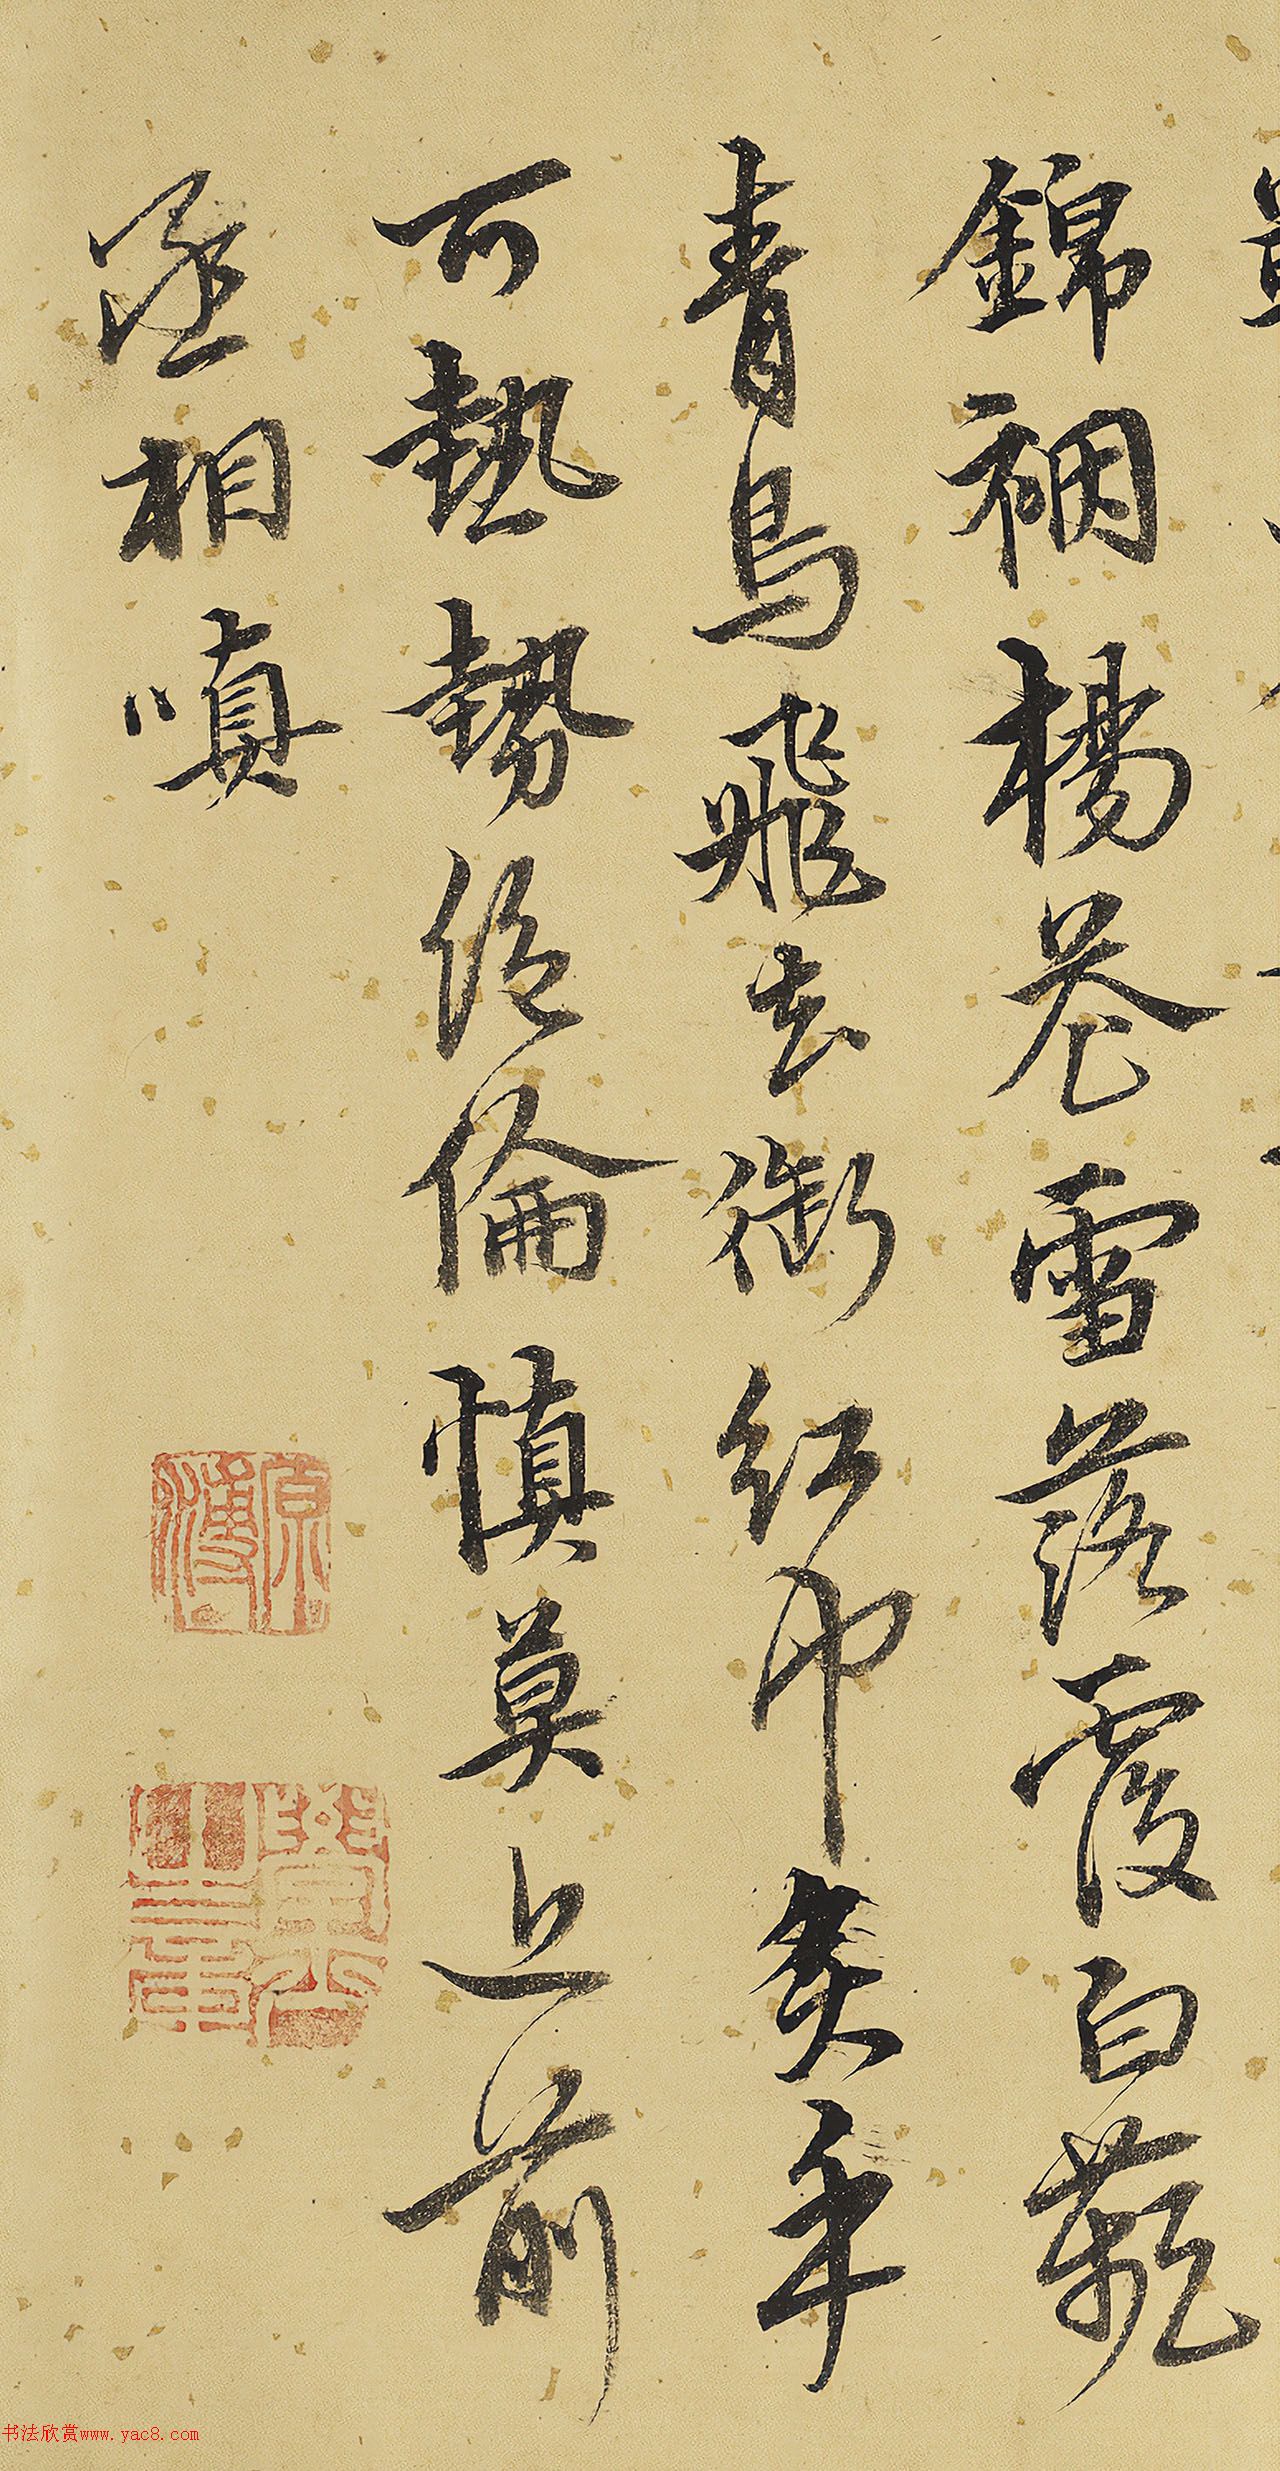 錦裀楊花雪落覆白蘋
青鳥飛去銜紅巾炙手
可熱勢絕倫慎莫近前
丞相嗔
原博
书法欣赏www.yac8.com